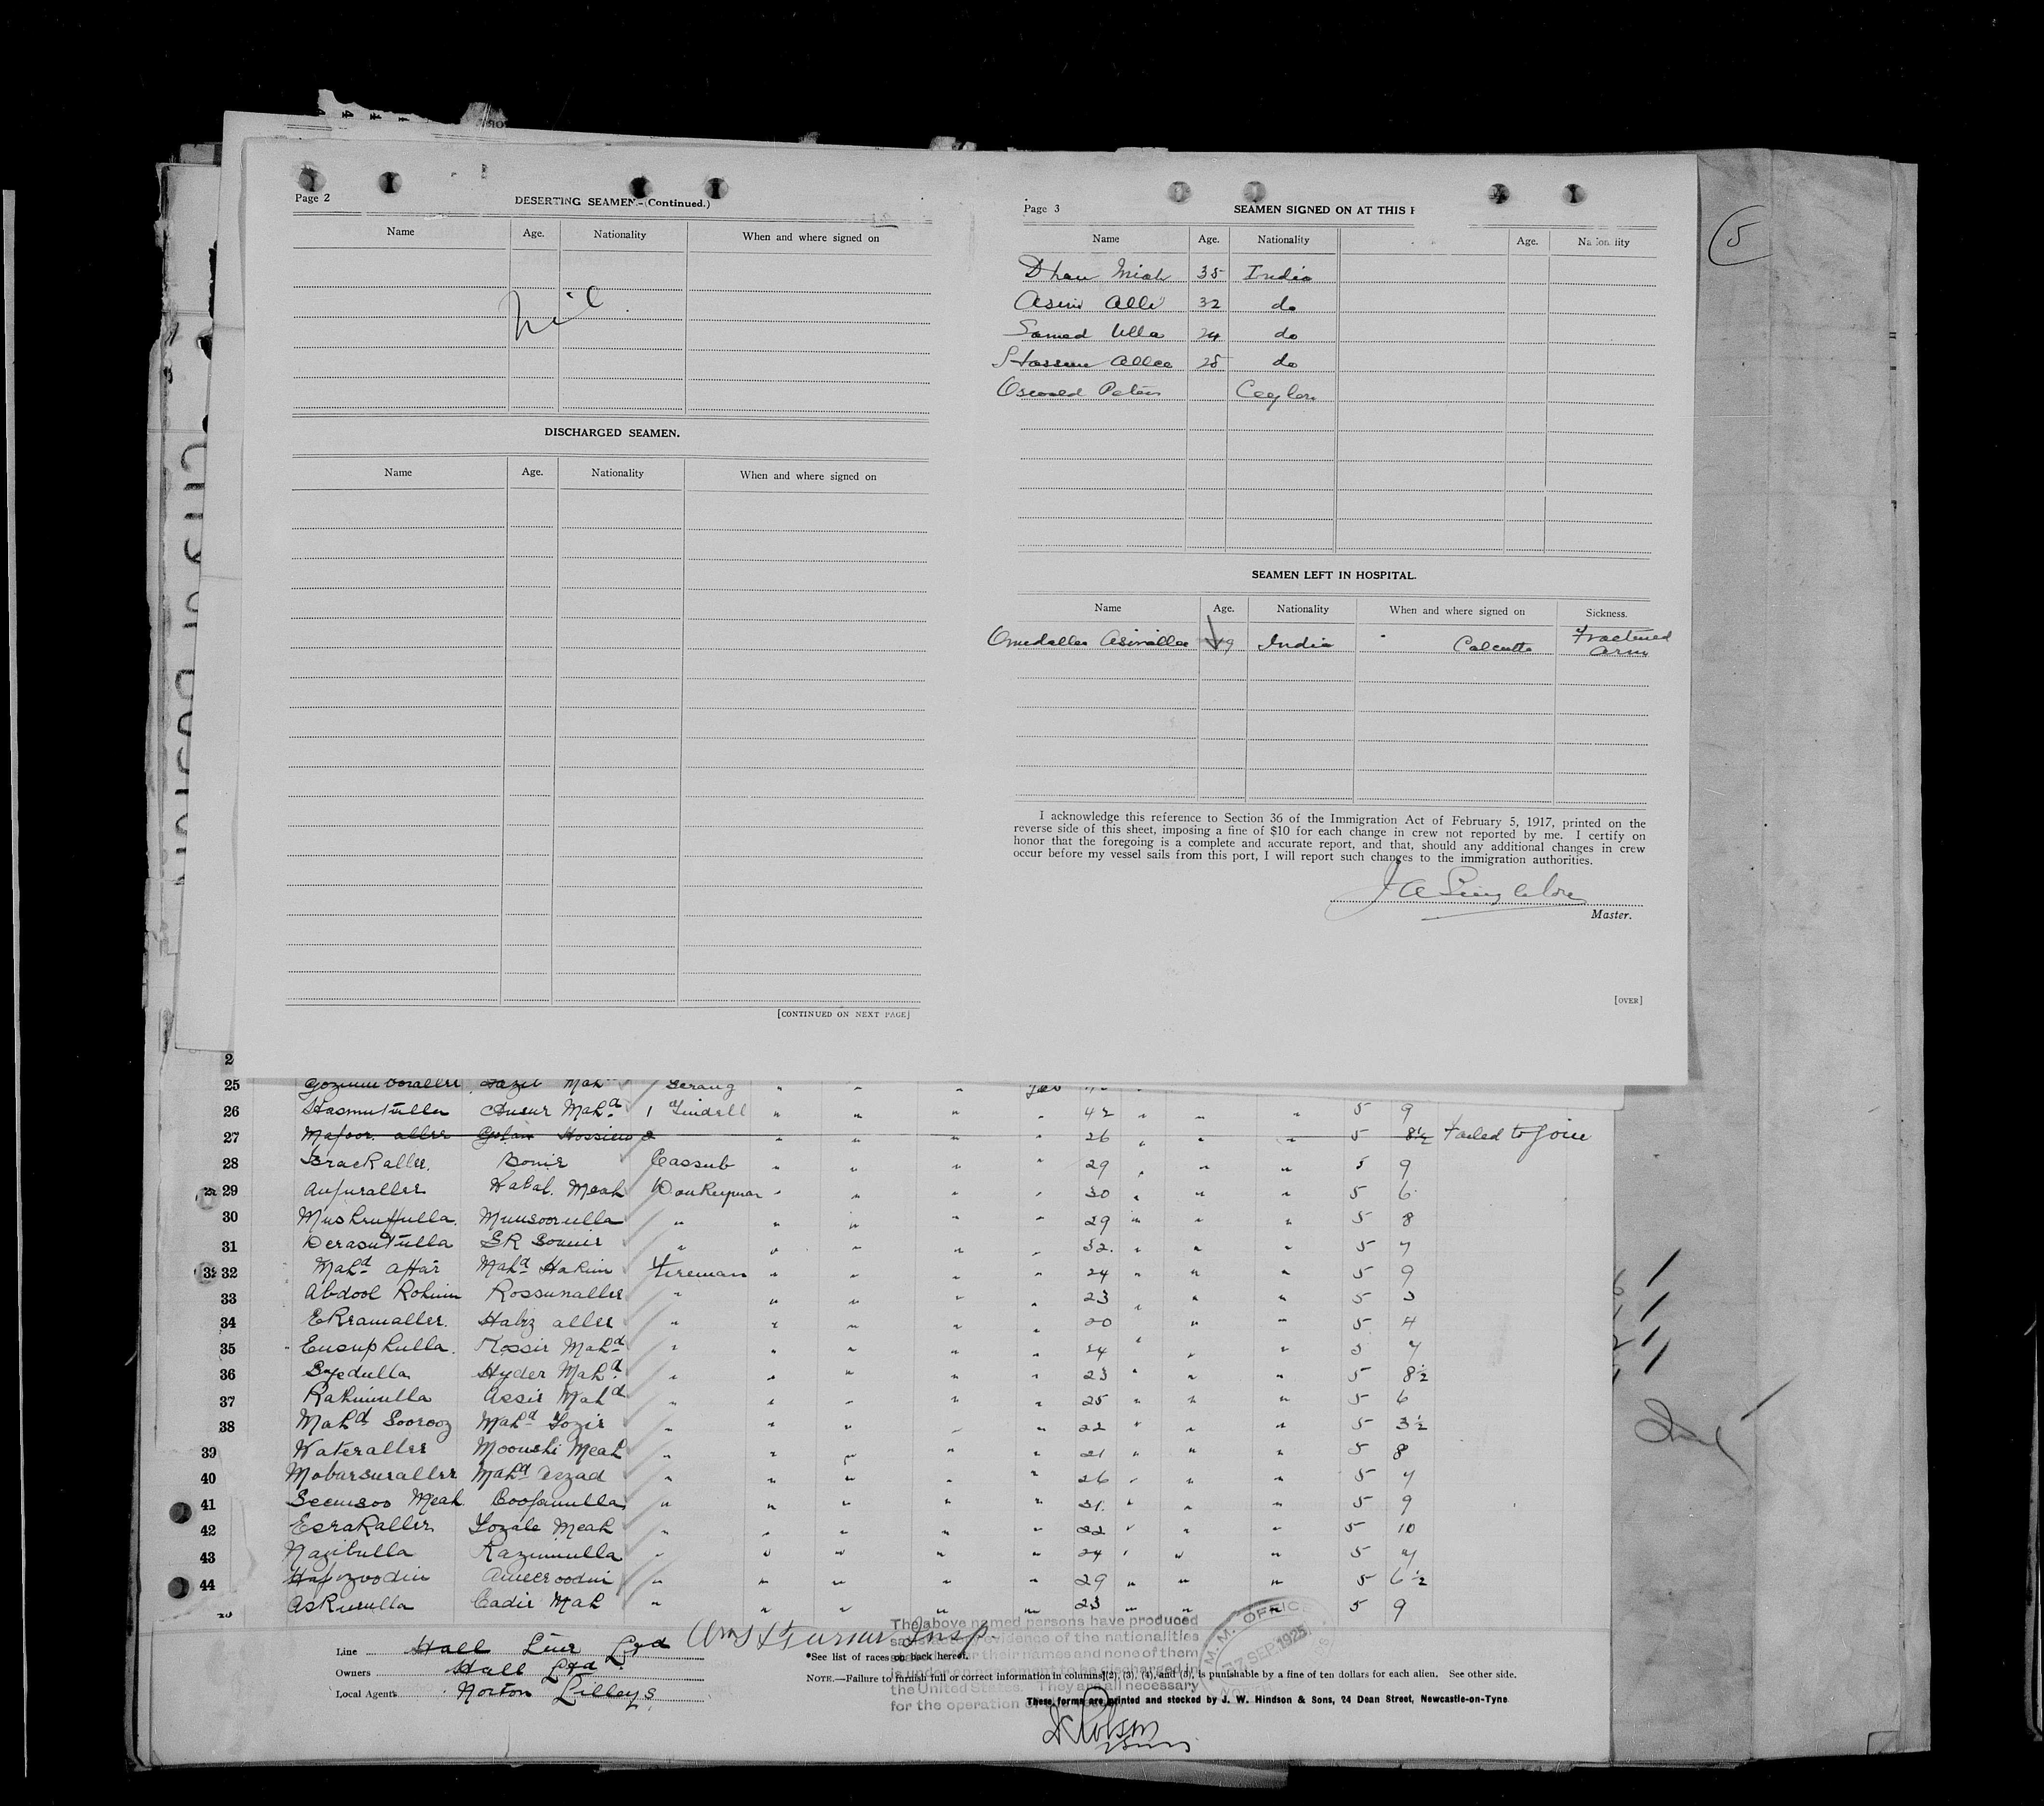 Page 2
DESERTING SEAMEN.-(Continued.)
Name Age. Nationality When and where signed on
Nil
DISCHARGED SEAMEN.
Name Age. Nationality When and where signed on
[CONTINUED ON NEXT PAGE]
Page 3
SEAMEN SIGNED ON AT THIS
Name Age. Nationality Age.
Dhan Miah 35 India
Asim Alli 32 do
Samed Ulla 24 do
Hassim Allee 25 do
Oswald Peters Ceylon
SEAMEN LEFT IN HOSPITAL.
Name Age. Nationality When and where signed on Sickness.
Omedallee Asinallee India Calcutta Fractured
arm
I acknowledge this reference to Section 36 of the Immigration Act of February 5, 1917, printed on the
reverse side of this sheet, imposing a fine of $10 for each change in crew not reported by me. I certify on
honor that the foregoing is a complete and accurate report, and that, should any additional changes in crew
occur before my vessel sails from this port, I will report such changes to the immigration authorities.
J A Singleton
Master.
[OVER]
5
25 Mahd Serang
26 Hasmutulla Ansur Mahd. 1 Tindell " " " " 42 " " " 5 9
27 Mafoor allee Golam Hossien " " " " 26 " " " 5 8½ Failed to Join
28 Brackallee. Bonir Cassub " " " " 29 " " " 5 9
29 Aufurallee Habal. Meah Donkeyman " " " " 30 " " " 5 6
30 Mushruffulla. Munsoorulla " " " " " 29 " " " 5 8
31 Derasutulla SR Somir " " " " " 32. " " " 5 7
32 Mahd. Affar Mahd. Hakim Fireman " " " " 24 " " " 5 9
33 Abdool Rohim Rossunallee " " " " " 23 " " " 5 3
34 Ekramallee. Habz allee " " " " " 20 " " " 5 4
35 Eusuphulla. Kossir Mahd " " " " " 24 " " " 5 7
36 Syedulla Hyder Mahd. " " " " " 23 " " " 5 8½
37 Rahimulla Assir Mahd " " " " " 25 " " " 5 6
38 Mahd Soorooz Mahd Gozir " " " " " 22 " " " 5 3½
39 Waterallee Moonshi Meah " " " " " 21 " " " 5 8
40 Mobarsurallee Mahd Arzad " " " " " 26 " " " 5 7
41 Seemsoo Meah. Boofamulla " " " " " 31. " " " 5 9
42 Esrakallee Gozale Meah " " " " " 22 " " " 5 10
43 Nazibulla Kazimulla " " " " " 24 " " " 5 7
44 Hafizoodin Ameeroodin " " " " " 29 " " " 5 6½
Askurulla Cadir Mah " " " " " 23 " " " 5 9
Line Hall Line Ltd
Owners Hall Ltd.
Local Agents Norton Lilleys.
Insp.
The above named persons have produced
satisfactory evidence of the nationalities
their names and none of them
is under an agreement to be discharged in
the United States. They are all necessary
for the operation of
*See list of races on back hereof.
NOTE.—Failure to furnish full or correct information in columns (2), (3), (4), and (5), is punishable by a fine of ten dollars for each alien. See other side.
These forms are printed and stocked by J. W. Hindson & Sons, 24 Dean Street, Newcastle-on-Tyne
M. M. OFFICE
SEP. 1925